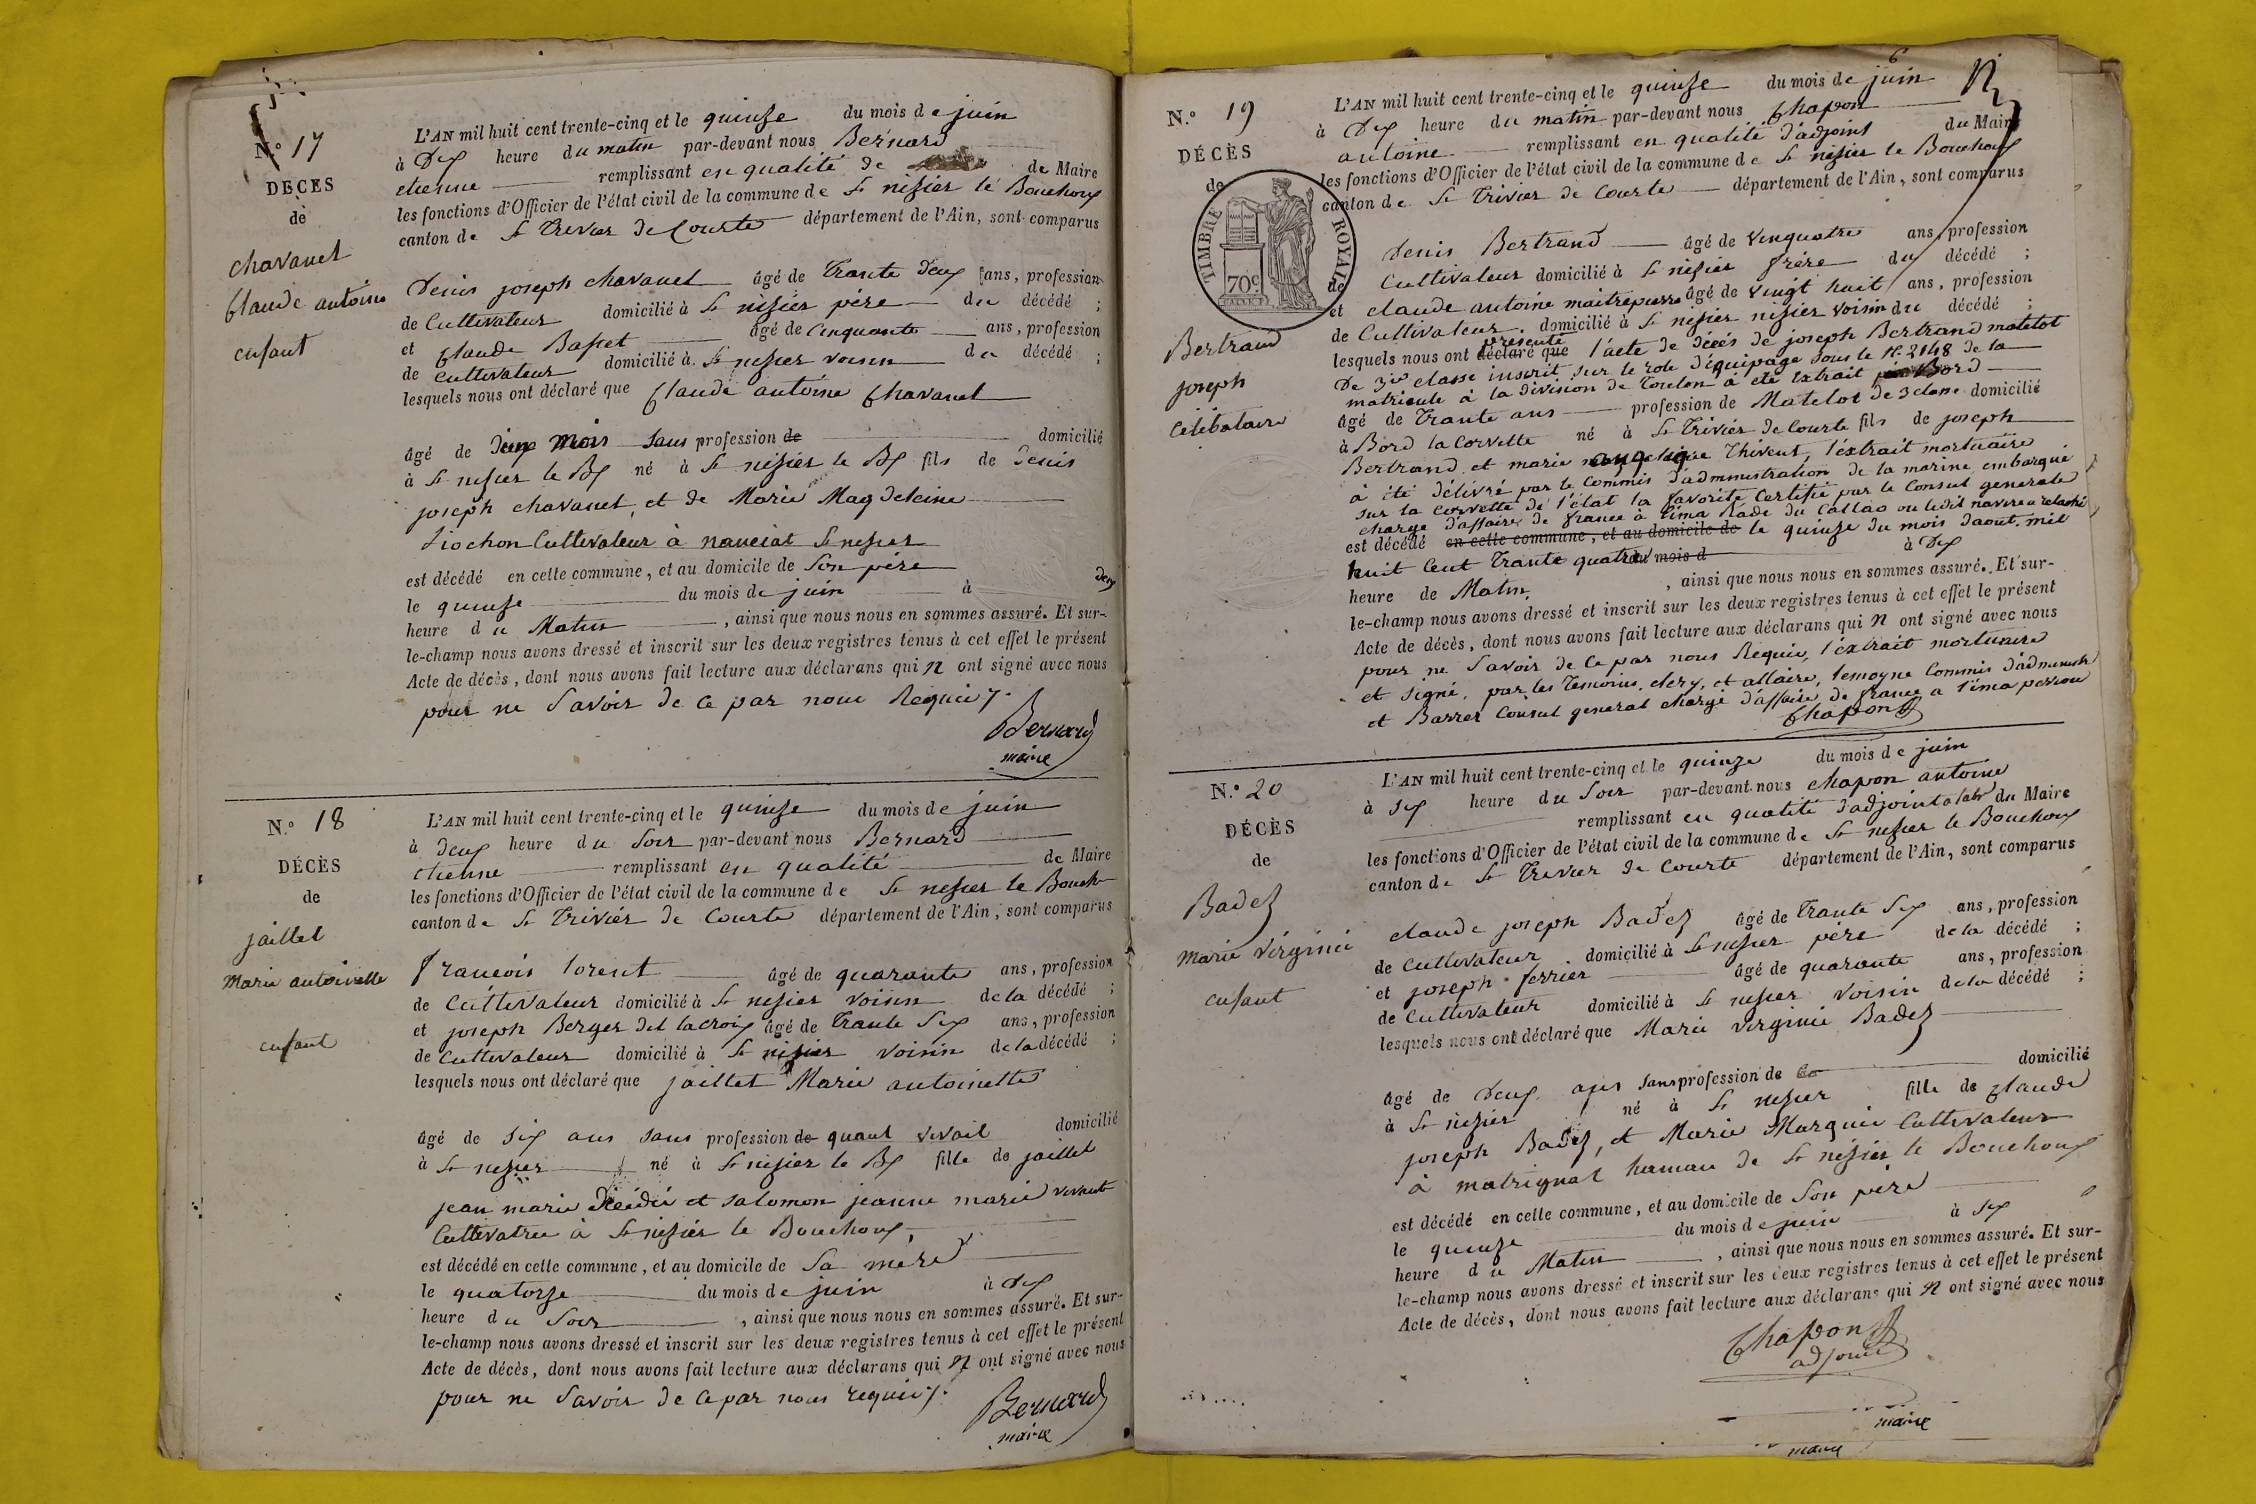 N.º 17
DÉCÈS
de
chavanet
Claude antoine
enfant
L'AN mil huit cent trente-cinq et le quinse du mois de juin
à Dix heure du matin par-devant nous Bernard
etienne remplissant en qualité de de Maire
les fonctions d'Officier de l'état civil de la commune de St nisier le Bouchoux
canton de St Trivier de Courte département de l'Ain, sont comparus
Denis joseph chavanet âgé de Trante deux ans, profession
de Cultivateur domicilié à St nisier père du décédé ;
et Claude Basset âgé de Cinquante ans, profession
de cultivateur domicilié à St nisier voisin du décédé ;
lesquels nous ont déclaré que Claude antoine Chavanet
âgé de deux Mois sans profession de domicilié
à St nisier le Bx né à St nisier le Bx fils de Denis
joseph chavanet, et de Marie Magdeleine
Tiochon Cultivateur à nanciat St nisier
est décédé en cette commune, et au domicile de Son père
le quinse du mois de juin à deux
heure du Matin, ainsi que nous nous en sommes assuré. Et sur-
le-champ nous avons dressé et inscrit sur les deux registres tenus à cet effet le présent
Acte de décès, dont nous avons fait lecture aux déclarans qui n ont signé avec nous
pour ne Savoir de ce par nous Requis
Bernard
maire
N.º 18
DÉCÈS
de
jaillet
Marie antoinette
enfant
L'AN mil huit cent trente-cinq et le quinse du mois de juin
à deux heure du Soir par-devant nous Bernard
etienne remplissant en qualité de Maire
les fonctions d'Officier de l'état civil de la commune de St nisier le Bouch
canton de St Trivier de Courte département de l'Ain, sont comparus
francois lorent âgé de quarante ans, profession
de Cultivateur domicilié à St nisier voisin de la décédé ;
et joseph Berger dit lacroix âgé de Trante Six ans, profession
de Cultivateur domicilié à St nisier voisin de la décédé ;
lesquels nous ont déclaré que jaillet Marie antoinette
âgé de Six ans sans profession de quant vivait domicilié
à St nisier né à St nisier le Bx fille de jaillet
jean marie décédé et salomon jeanne marie vivant
Cultivatrice à St nisier le Bouchoux,
est décédé en cette commune, et au domicile de Sa mère
le quatorze du mois de juin à dix
heure du Soir, ainsi que nous nous en sommes assuré. Et sur-
le-champ nous avons dressé et inscrit sur les deux registres tenus à cet effet le présent
Acte de décès, dont nous avons fait lecture aux déclarans qui n ont signé avec nous
pour ne Savoir de ce par nous requis
Bernard
maire
6
N.º 19
DÉCÈS
de
TIMBRE ROYAL
70c
de
Bertrand
joseph
Célibataire
L'AN mil huit cent trente-cinq et le quinse du mois de juin
à Dix heure du matin par-devant nous Chapon
antoine remplissant en qualité d'adjoint du Maire
les fonctions d'Officier de l'état civil de la commune de St nisier le Bouchoux
canton de St Trivier de Courte département de l'Ain, sont comparus
Denis Bertrand âgé de vinquatre ans, profession
Cultivateur domicilié à St nisier frère du décédé ;
et claude antoine maitrepierre âgé de vingt huit ans, profession
de Cultivateur domicilié à St nisier nisier voisin du décédé ;
lesquels nous ont déclaré que présenté l'acte de décés de joseph Bertrand matelot
De 3ie classe inscrit sur le role d'équipage sous le N. 2148 de la
matricule à la division de Toulon à été Extrait Bord
âgé de Trante ans profession de Matelot de 3 classe domicilié
à Bord la corvette né à St Trivier de Courte fils de joseph
Bertrand et marie Thivent, l'extrait mortuaire
à été délivré par le Commis d'administration de la marine embarqué
sur la corvette de l'état la favorite Certifié par le Consul generale
charge d'affaire de france à lima Rade du Callao ou ledit navire a relaché
est décédé en cette commune, et au domicile de le quinse du mois daout mil
huit Cent Trante quatre du mois d à Dix
heure de Matin, ainsi que nous nous en sommes assuré. Et sur-
le-champ nous avons dressé et inscrit sur les deux registres tenus à cet effet le présent
Acte de décès, dont nous avons fait lecture aux déclarans qui n ont signé avec nous
pour ne Savoir de ce par nous Requis, l'éxtrait mortuaire
et Signé, par les Temoins, clery, et allaire, lemoyne Commis d'administr
et Barrer Consul general chargé d'affaire de france a lima perrou
Chapon
N.º 20
DÉCÈS
de
Badez
marie virginie
enfant
L'AN mil huit cent trente-cinq et le quinze du mois de juin
à six heure du Soir par-devant nous chapon antoine
remplissant en qualité d'adjoint du Maire
les fonctions d'Officier de l'état civil de la commune de St nisier le Bouchoux
canton de St Trivier de Courte département de l'Ain, sont comparus
claude joseph Badez âgé de Trante Six ans, profession
de Cultivateur domicilié à St nisier père de la décédé ;
et joseph ferrier âgé de quarante ans, profession
de Cultivateur domicilié à St nisier Voisin de la décédé ;
lesquels nous ont déclaré que Marie virginie Badez
âgé de Deux ans sans profession de domicilié
à St nisier né à St nisier fille de Claude
joseph Badez, et Marie Marguin Cultivateur
à matrignat hamau de St nisier le Bouchoux
est décédé en cette commune, et au domicile de Son père
le quinse du mois de juin à six
heure du Matin, ainsi que nous nous en sommes assuré. Et sur-
le-champ nous avons dressé et inscrit sur les deux registres tenus à cet effet le présent
Acte de décès, dont nous avons fait lecture aux déclarans qui n ont signé avec nous
Chapon
adjoint
maire
maire